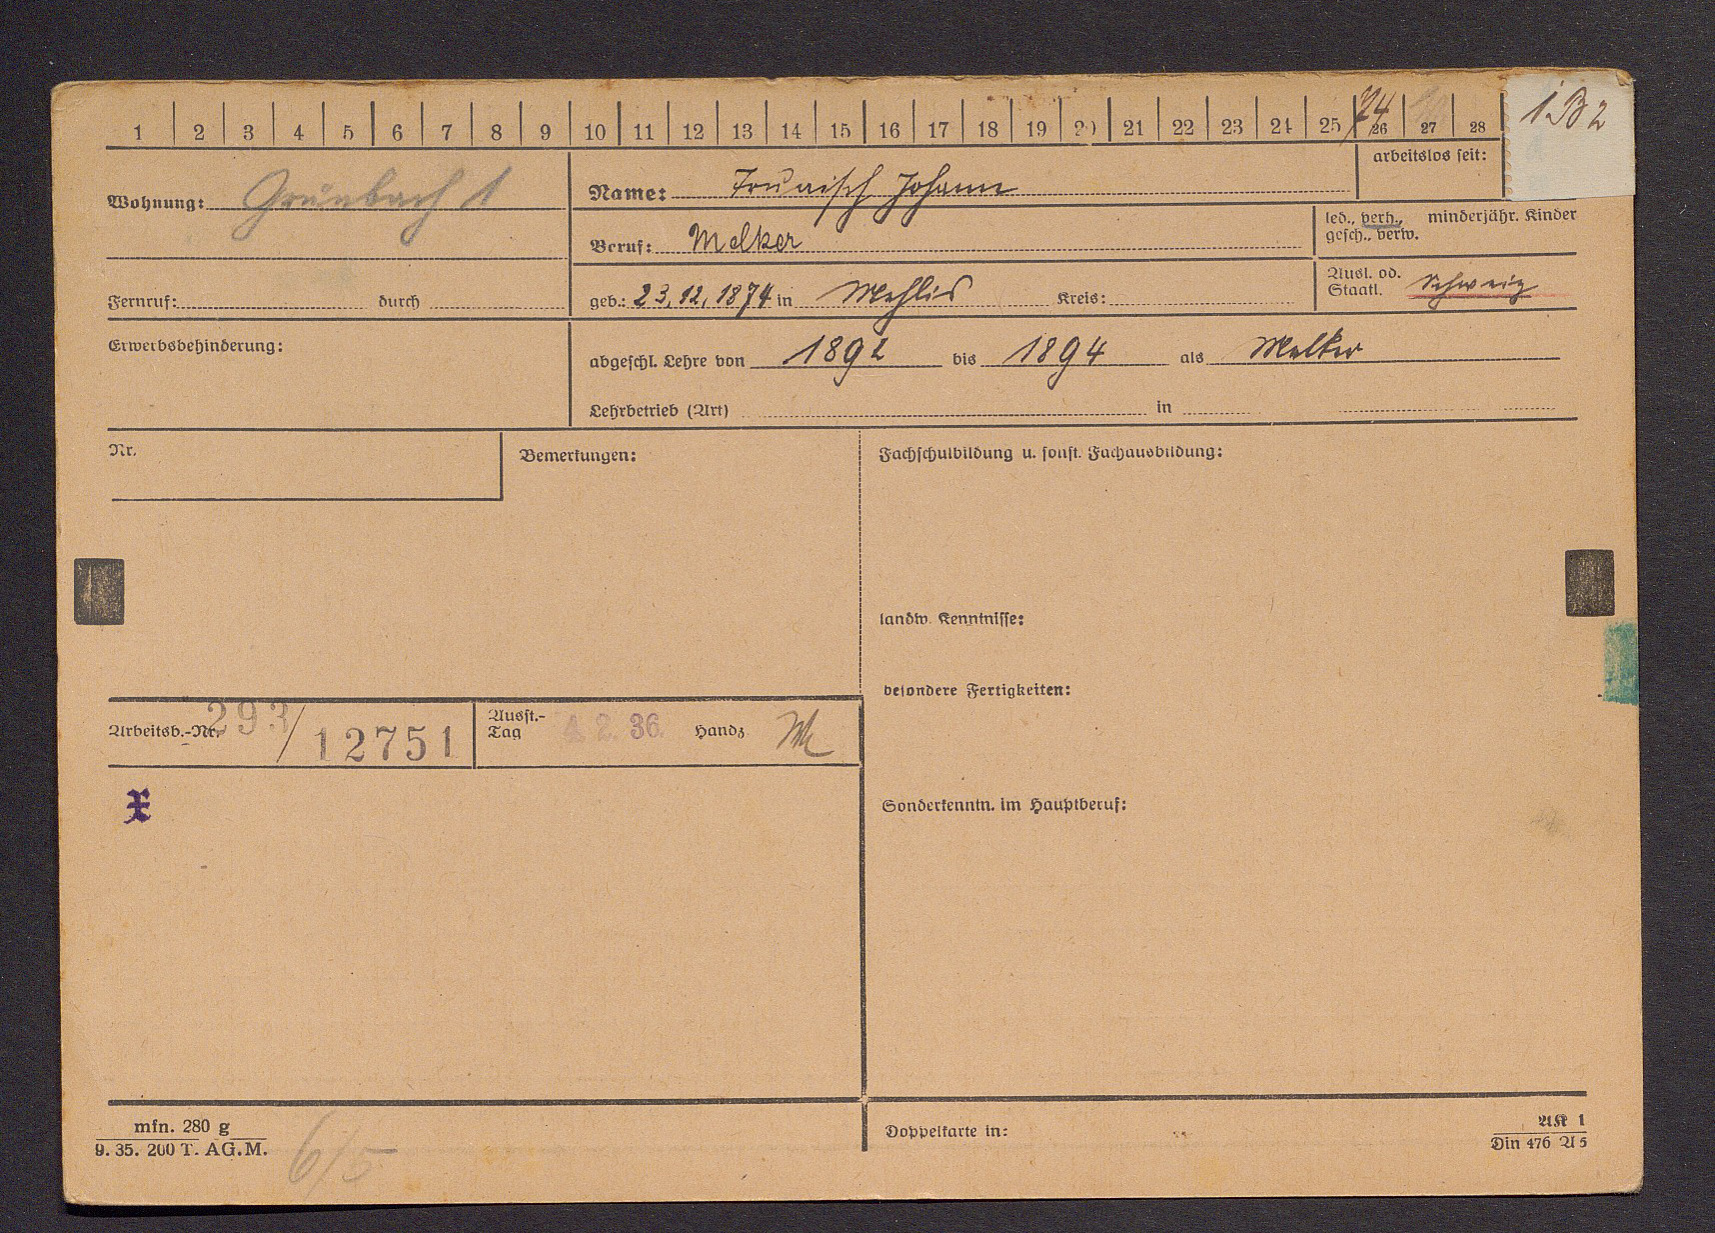 1 2 3 4 5 6 7 8 9 10 11 12 13 14 15 16 17 18 19 20 21 22 23 24 25 26 27 28
74
1 B 2
arbeitslos seit:
Wohnung: Grünbach 1
Name: Johann
led., verh., minderjähr. Kinder
gesch., verw.
Beruf: Melker
Fernruf: durch
geb.: 23.12.1874 in Mehlis Kreis:
Ausl. od.
Staatl. Schweiz
Erwerbsbehinderung:
abgeschl. Lehre von 1892 bis 1894 als Melker
Lehrbetrieb (Art) in
Nr.
Bemerkungen:
Fachschulbildung u. sonst. Fachausbildung:
landw. Kenntnisse:
besondere Fertigkeiten:
Arbeitsb.-Nr. 293/12751
Ausst.-
Tag 4. 2. 36. Handz
Sonderkenntn. im Hauptberuf:
mfn. 280 g
9. 35. 200 T. AG.M.
6/5
Doppelkarte in:
AK 1
Din 476 A 5